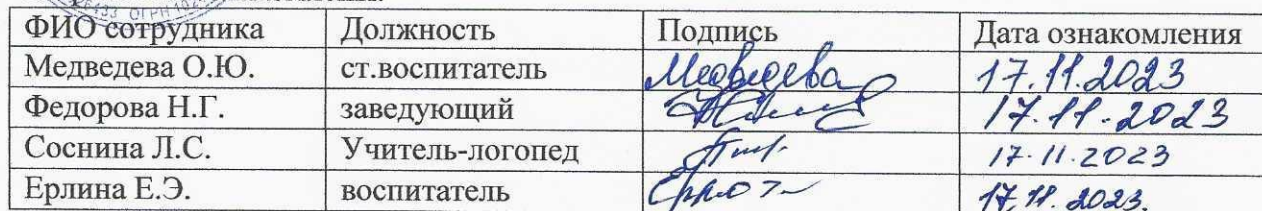 ФИО сотрудника Должность Подпись Дата ознакомления
Медведева О.Ю. ст.воспитатель Медведева 17.11.2023
Федорова Н.Г. заведующий 17.11.2023
Соснина Л.С. Учитель-логопед 17.11.2023
Ерлина Е.Э. воспитатель 17.11.2023.